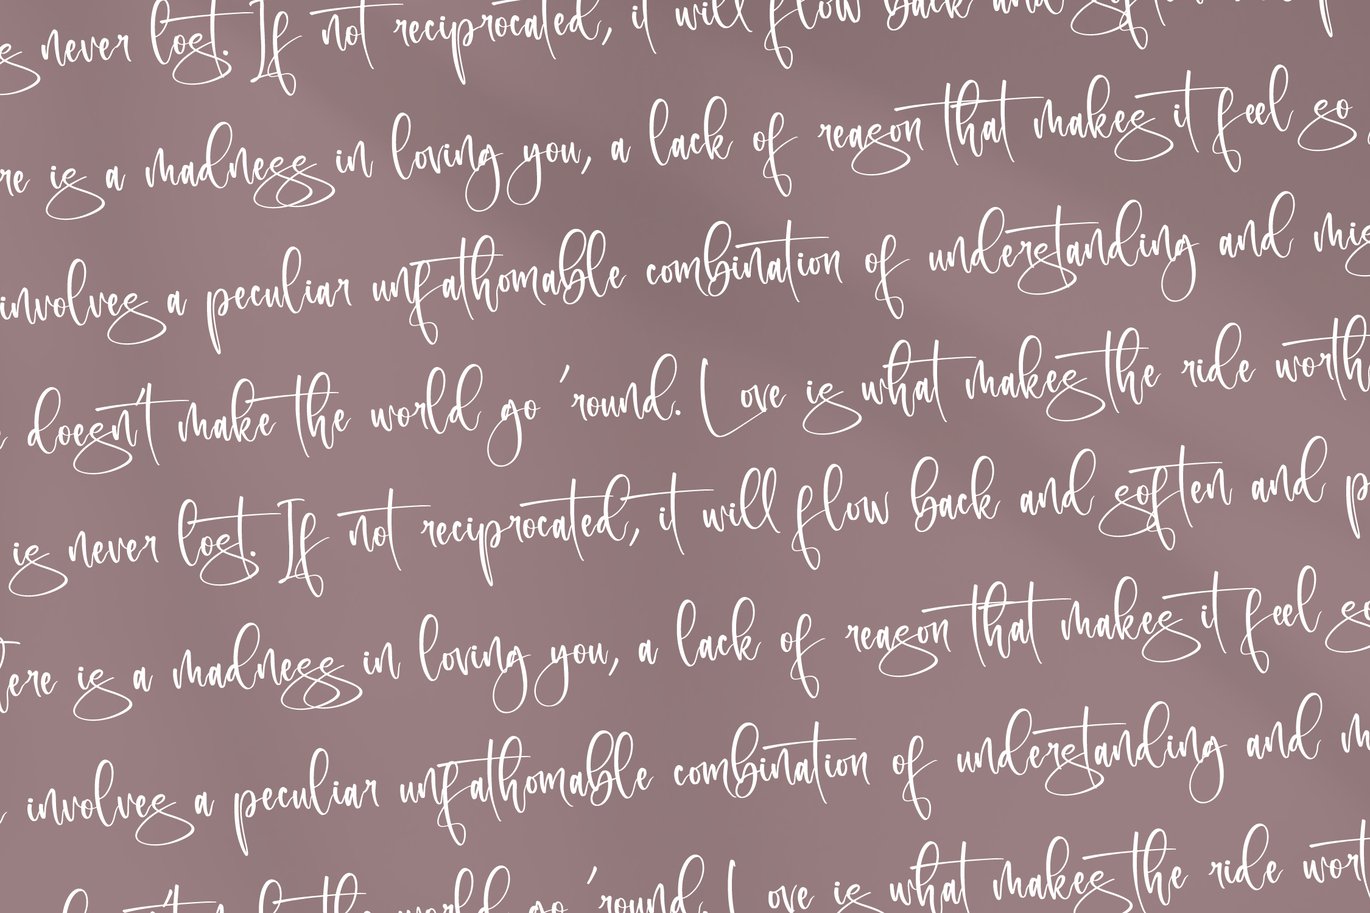 is never lost. If not reciprocated, it will flow back and soften
is a madness in loving you, a lack of reason that makes it feel so
involves a peculiar unfathomable combination of understanding and
doesn't make the world go 'round. Love is what makes the ride worth
is never lost. If not reciprocated, it will flow back and soften and
is a madness in loving you, a lack of reason that makes it feel so
involves a peculiar unfathomable combination of understanding and
doesn't make the world go 'round. Love is what makes the ride